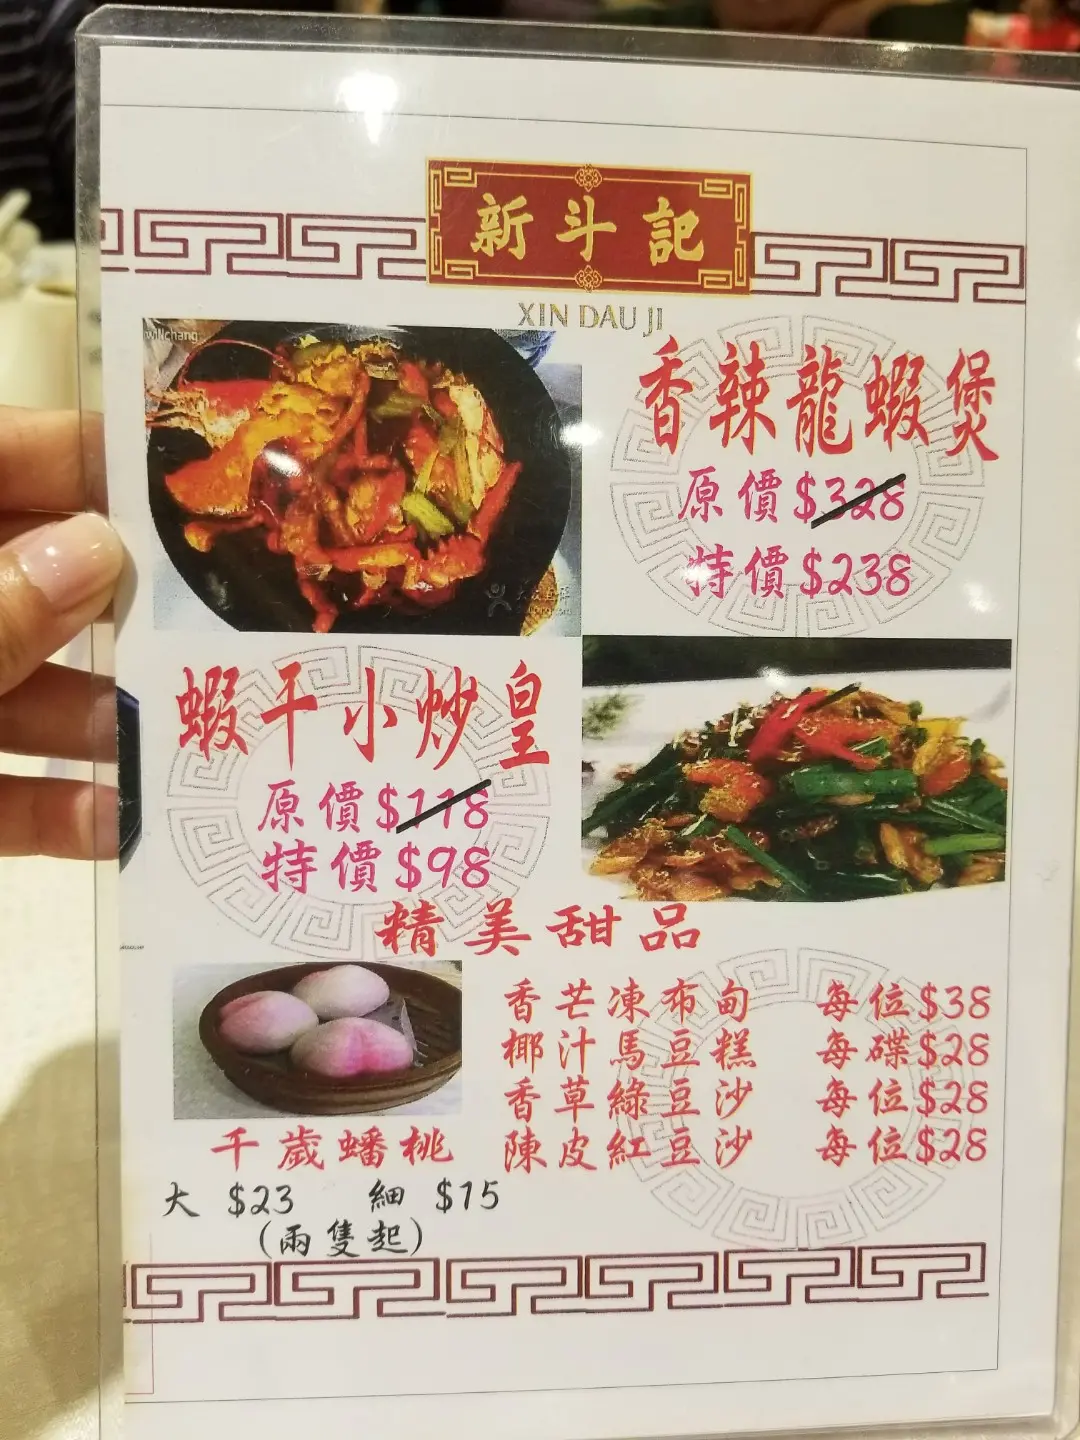 新斗記
XIN DAU JI
willchang
香辣龍蝦煲
原價$328
特價$238
蝦干小炒皇
原價$118
特價$98
精美甜品
香芒凍布甸 每位$38
椰汁馬豆糕 每碟$28
香草綠豆沙 每位$28
陳皮紅豆沙 每位$28
千歲蟠桃
大 $23 細 $15
(兩隻起)